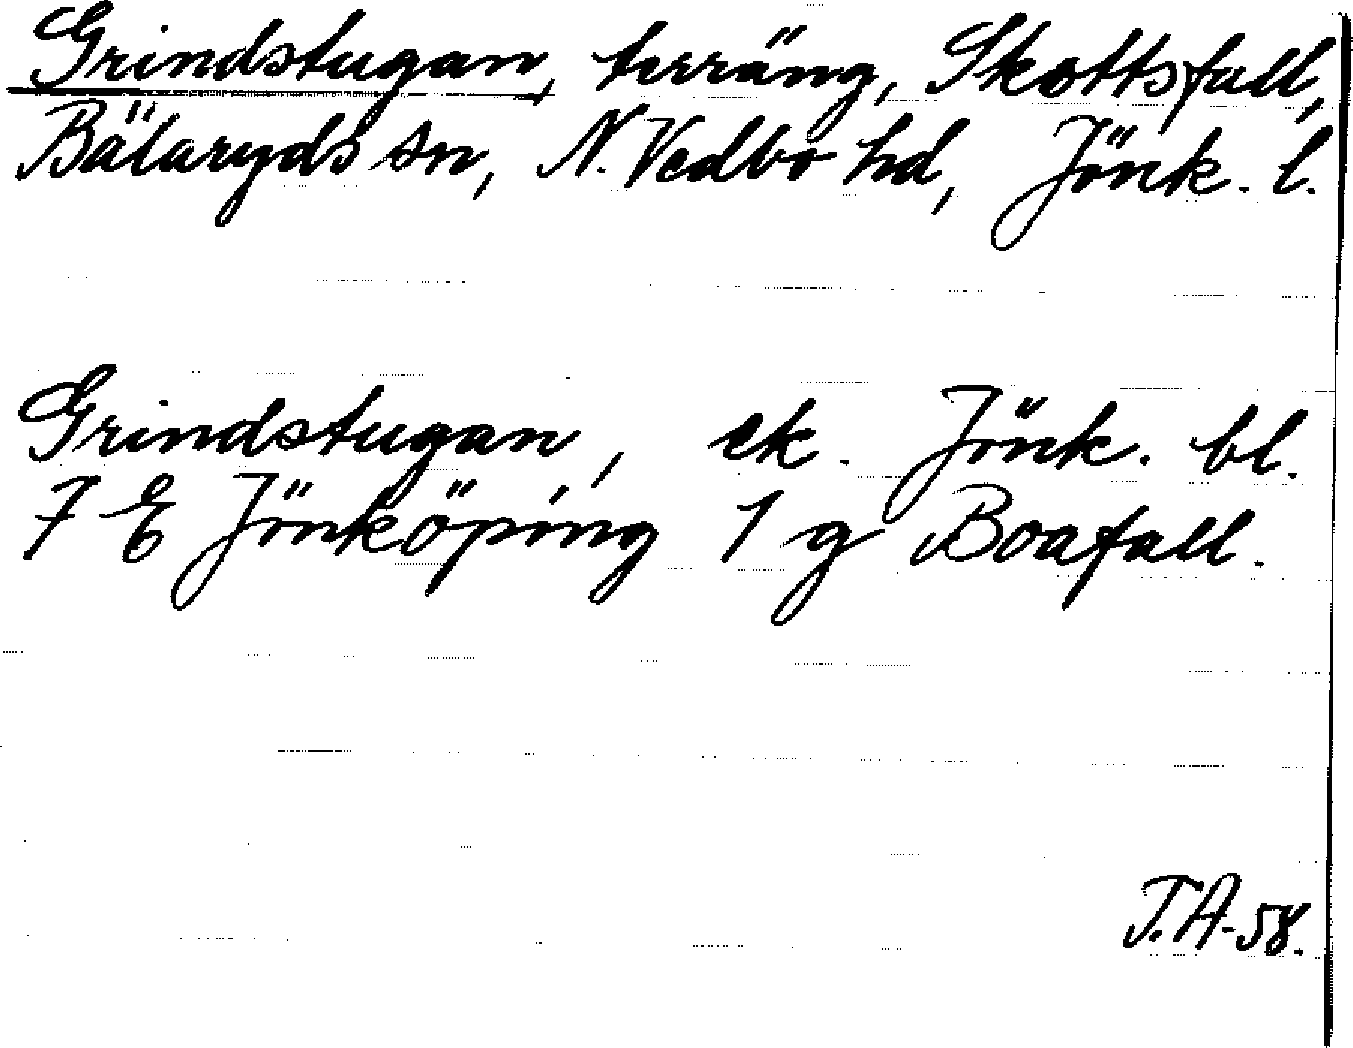 Grindstugan, terräng, Skottsfall,
Bälaryds sn, N. Vedbo hd, Jönk. l.
Grindstugan, ek. Jönk. bl.
7 E Jönköping 1 g Boafall.
T.A-58.